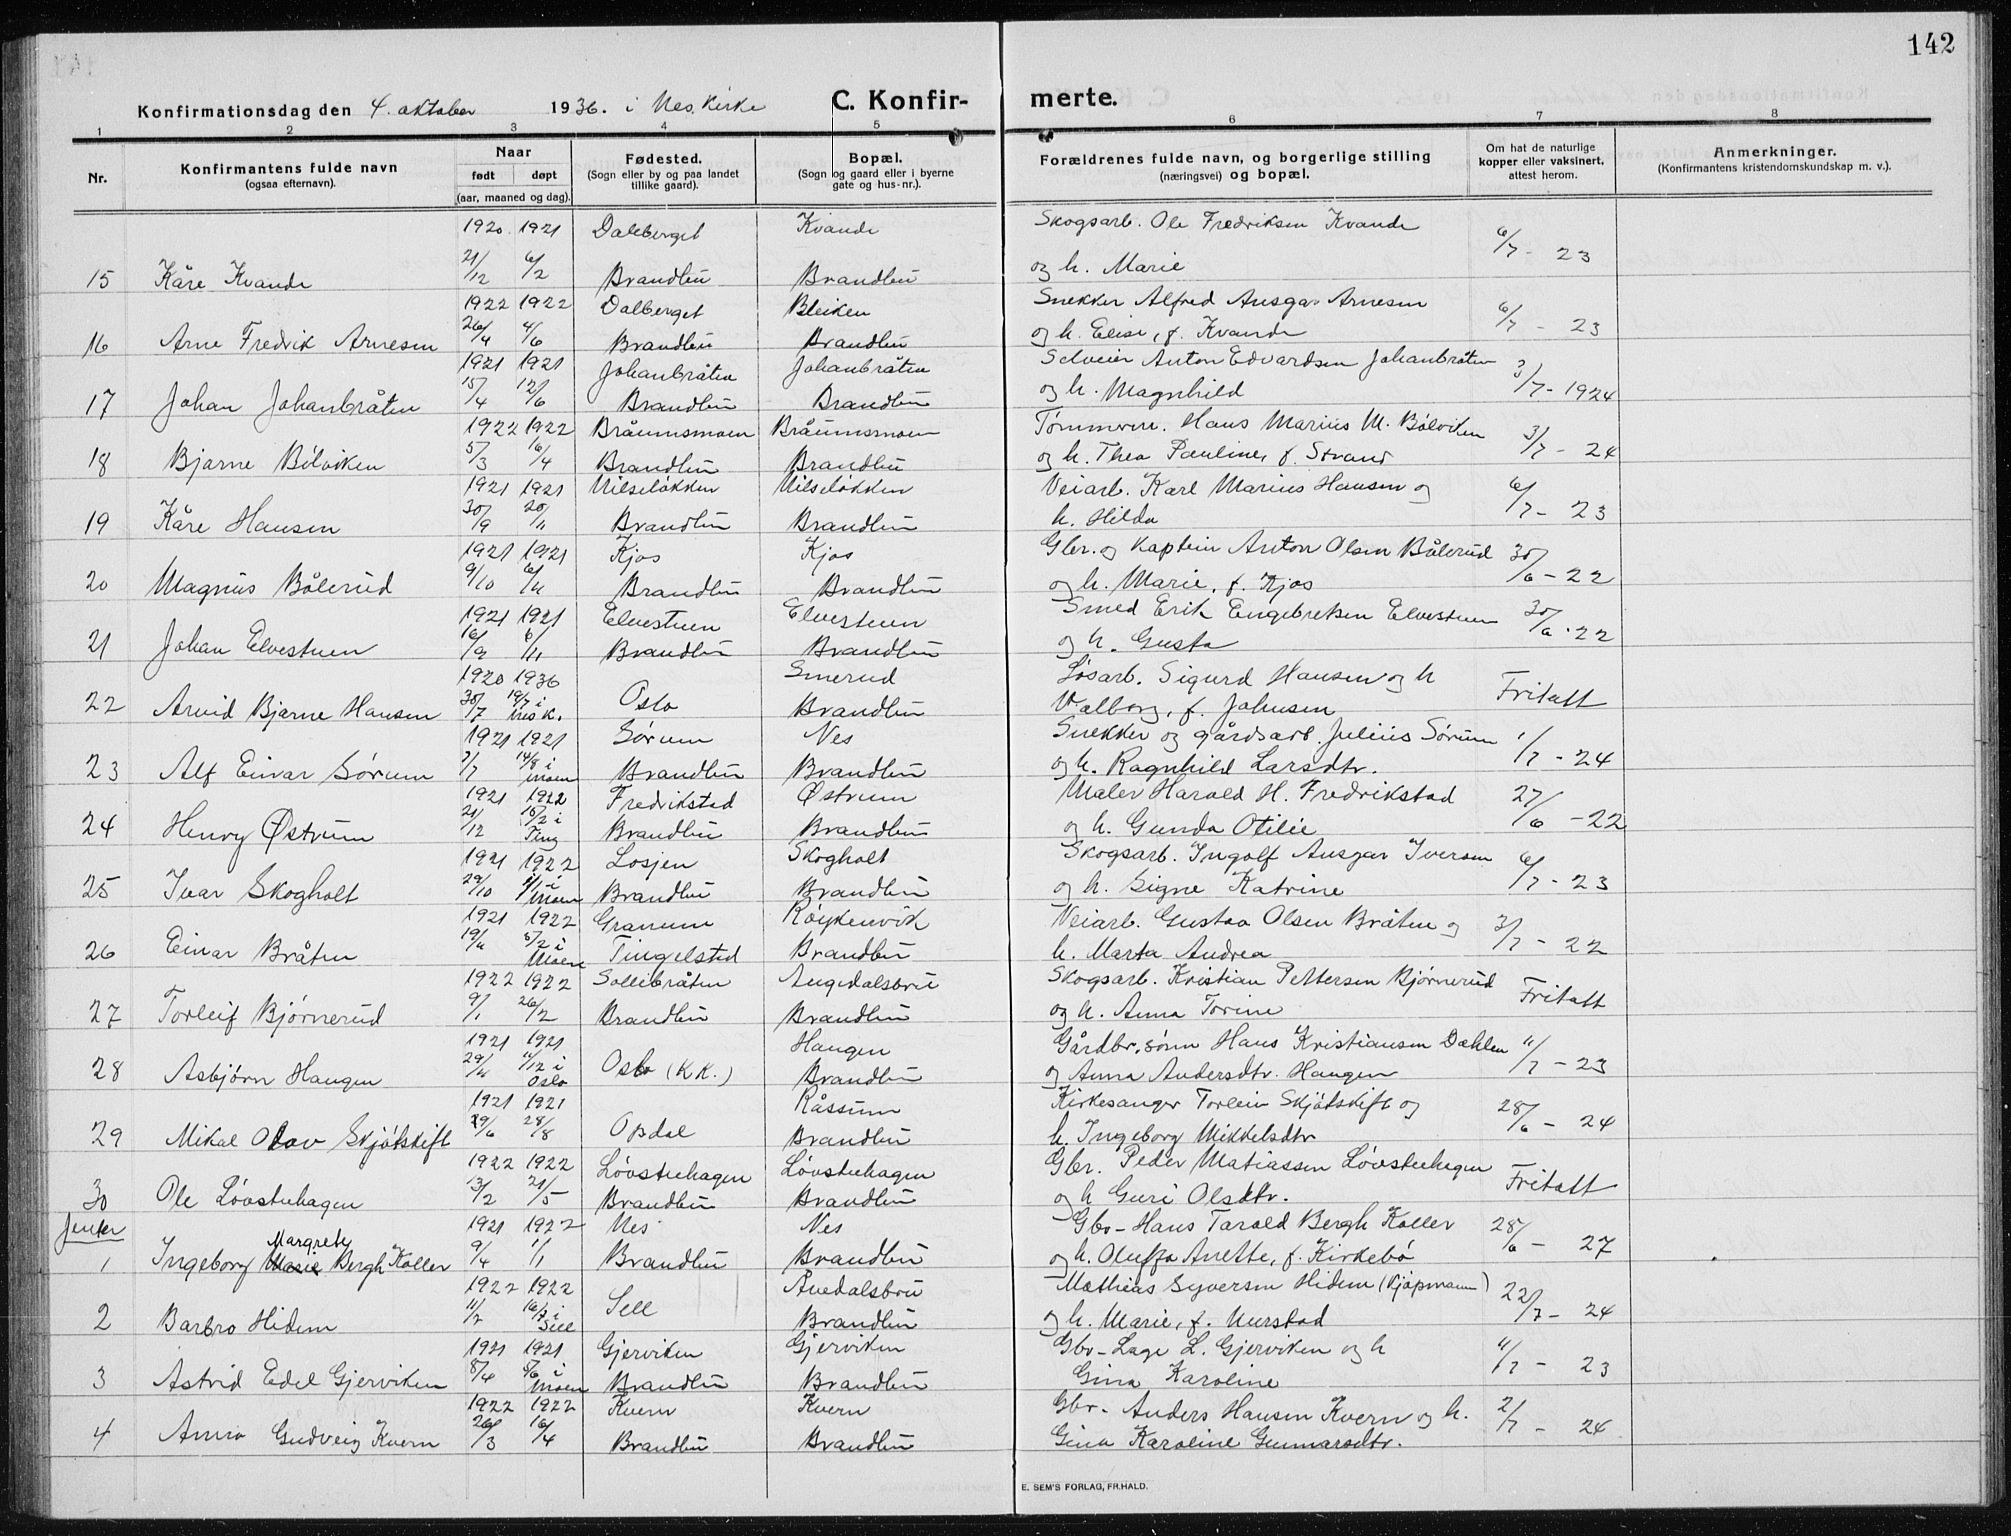 142
Konfirmationsdag den 4. oktober 1936. i Nes kirke C. Konfir- merte.
1 2 3 4 5 6 7 8
Nr. Konfirmantens fulde navn (ogsaa efternavn). Naar født døpt (aar, maaned og dag). Fødested. (Sogn eller by og paa landet tillike gaard). Bopæl. (Sogn og gaard eller i byerne gate og hus-nr.). Forældrenes fulde navn, og borgerlige stilling (næringsvei) og bopæl. Om hat de naturlige kopper eller vaksinert, attest herom. Anmerkninger. (Konfirmantens kristendomskundskap m. v.).
1920 1921 Dalberget Kvande Skogsarb. Ole Fredriksen Kvande
15 Kåre Kvande 21/12 6/2 Brandbu Brandbu og h. Marie 6/7 - 23
1922 1922 Dalberget Bleiken Snekker Alfred Ansgar Arnesen
16 Arne Fredrik Arnesen 26/4 4/6 Brandbu Brandbu og h. Elise, f. Kvande 6/7 - 23
1921 1921 Johanbråten Johanbråten Selveier Anton Edvardsen Johanbråten
17 Johan Johanbråten 15/4 12/6 Brandbu Brandbu og h. Magnhild 3/7 - 1924
1922 1922 Bråumsmoen Bråumsmoen Tømmerm. Hans Marius M. Bølviken
18 Bjarne Bølviken 5/3 16/4 Brandbu Brandbu og h. Thea Pauline, f. Strand 3/7 - 24
1921 1921 Nilseløkken Nilseløkken Veiarb. Karl Marius Hansen og
19 Kåre Hansen 30/9 20/11 Brandbu Brandbu h. Hilda 6/7 - 23
1921 1921 Kjos Kjos Gbr. og Kaptein Anton Olsen Bålerud
20 Magnus Bålerud 9/10 6/11 Brandbu Brandbu og h. Marie, f. Kjos 30/6 - 22
1921 1921 Elvestuen Elvestuen Smed Erik Engebretsen Elvestuen
21 Johan Elvestuen 16/9 6/11 Brandbu Brandbu og h. Gusta 30/6 - 22
1920 1936 Smerud Løsarb. Sigurd Hansen og h
22 Arvid Bjarne Hansen 30/7 19/7 i Nes k. Oslo Brandbu Valborg, f. Johnsen Fritatt
1921 1921 Sørum Nes Snekker og gårdsarb. Julius Sørum
23 Alf Einar Sørum 3/7 14/8 i Moen Brandbu Brandbu og h. Ragnhild Larsdtr. 1/7 - 24
1921 1922 Fredrikstad Østrum Maler Harald H. Fredrikstad
24 Henry Østrum 21/12 15/2 i Ting Brandbu Brandbu og h. Gunda Otilie 27/6 - 22
1921 1922 Losjen Skogholt Skogsarb. Ingolf Ansgar Iversen
25 Ivar Skogholt 29/10 1/1 i Moen Brandbu Brandbu og h. Signe Katrine 6/7 - 23
1921 1922 Granum Røykenvik Veiarb. Gustav Olsen Bråten og
26 Einar Bråten 19/11 5/2 i Moen Tingelstad Brandbu h. Marta Andrea 3/7 - 22
1922 1922 Sollibråten Augedalsbru Skogsarb. Kristian Pettersen Bjørnerud
27 Torleif Bjørnerud 9/1 26/2 Brandbu Brandbu og h. Anna Torine Fritatt
1921 1921 Haugen Gårdbr.sønn Hans Kristiansen Dahlen
28 Asbjørn Haugen 29/4 11/12 i Oslo Oslo (KK.) Brandbu og Anna Andersdtr. Haugen 11/7 - 23
1921 1921 Råssum Kirkesanger Torleiv Skjøtskift og
29 Mikal Olav Skjøtskift 29/6 28/8 Opdal Brandbu h. Ingeborg Mikkelsdtr 28/6 - 24
1922 1922 Løvstuhagen Løvstuhagen Gbr. Peder Matiassen Løvstuhagen
30 Ole Løvstuhagen 13/2 21/5 Brandbu Brandbu og h Guri Olsdtr. Fritatt
Jenter 1921 1922 Nes Nes Gbr- Hans Tarald Bergh Koller
1 Ingeborg Margrete Marie Bergh Koller 9/4 1/1 Brandbu Brandbu og h. Oluffa Anette, f. Kirkebø 28/6 - 27
1922 1922 Augedalsbru Mathias Syversen Hidem (kjøpmann)
2 Barbro Hidem 11/2 16/7 i Sell Sell Brandbu og h. Marie, f. Nurstad 22/7 - 24
1921 1921 Gjerviken Gjerviken Gbr- Lage L. Gjerviken og h
3 Astrid Edel Gjerviken 8/4 5/6 i Moen Brandbu Brandbu Gina Karoline 11/7 - 23
1922 1922 Kvern Kvern Gbr- Anders Hansen Kvern og h.
4 Anna Gudveig Kvern 26/3 16/4 Brandbu Brandbu Gina Karoline Gunnarsdtr. 2/7 - 24
E. SEM'S FORLAG, FR.HALD.